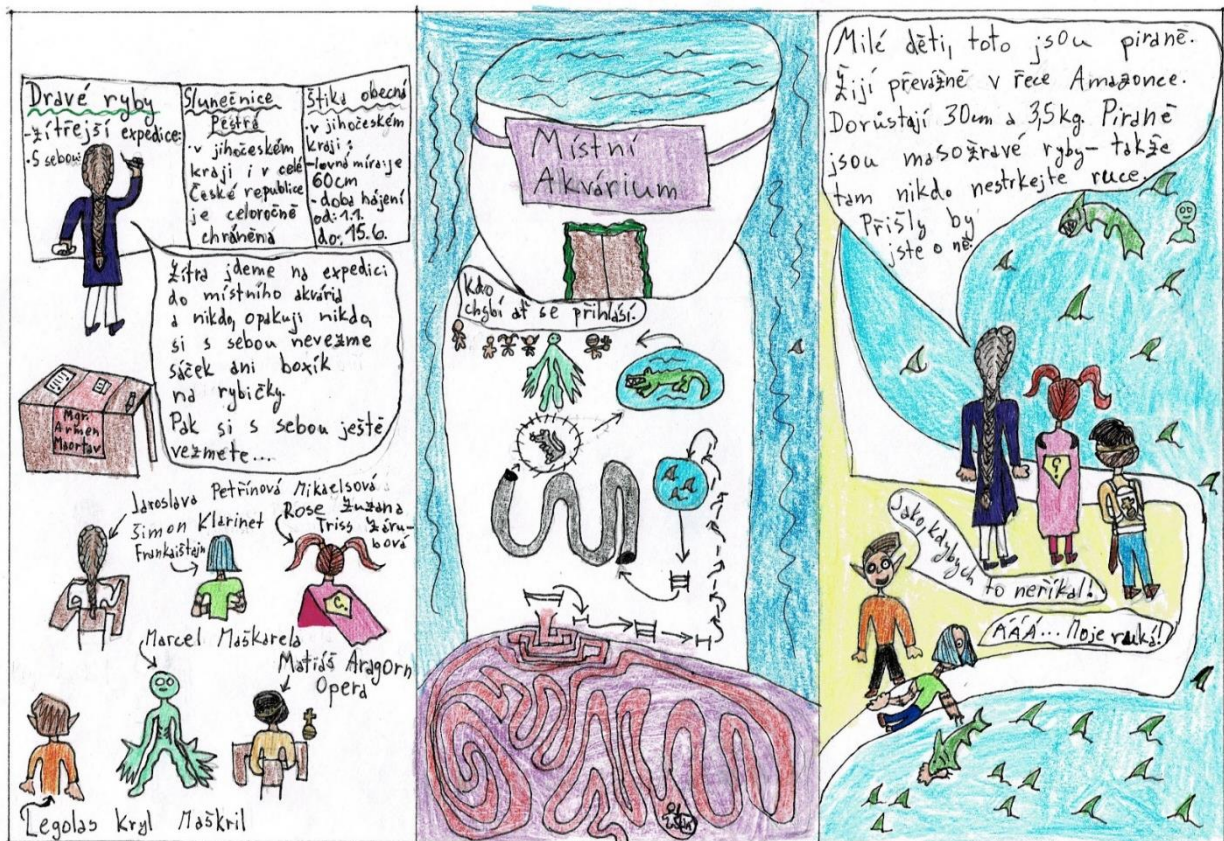 Dravé ryby
-zítřejší expedice:
•S sebou
Slunečnice
Pestrá
•v jihočeském
kraji i v celé
České republice
je celoročně
chráněná
Štika obecná
•v jihočeském
kraji:
-lovná míra:je
60cm
-doba hájení
od:1.1.
do:15.6.
Zítra jdeme na expedici
do místního akvária
a nikdo, opakuji nikdo,
si s sebou nevezme
sáček ani boxík
na rybičky.
Pak si s sebou ještě
vezmete...
Mgr.
Armen
Maortav
Jaroslava Petřínová Mikaelsová
Šimon Klarinet
Frankaištajn
Rose Zuzana
Triss Záru-
bová
Marcel Maškarela
Matiáš Aragorn
Opera
Legolas Kryl Maškril
Místní
Akvárium
Kdo
chybí ať se přihlásí.
Milé děti, toto jsou piraně.
Žijí převážně v řece Amazonce.
Dorůstají 30cm a 3,5kg. Piraně
jsou masožravé ryby- takže
tam nikdo nestrkejte ruce.
Přišly by
jste o ně.
Jako,kdybych
to neříkal!
ÁÁÁ... Moje ruká!